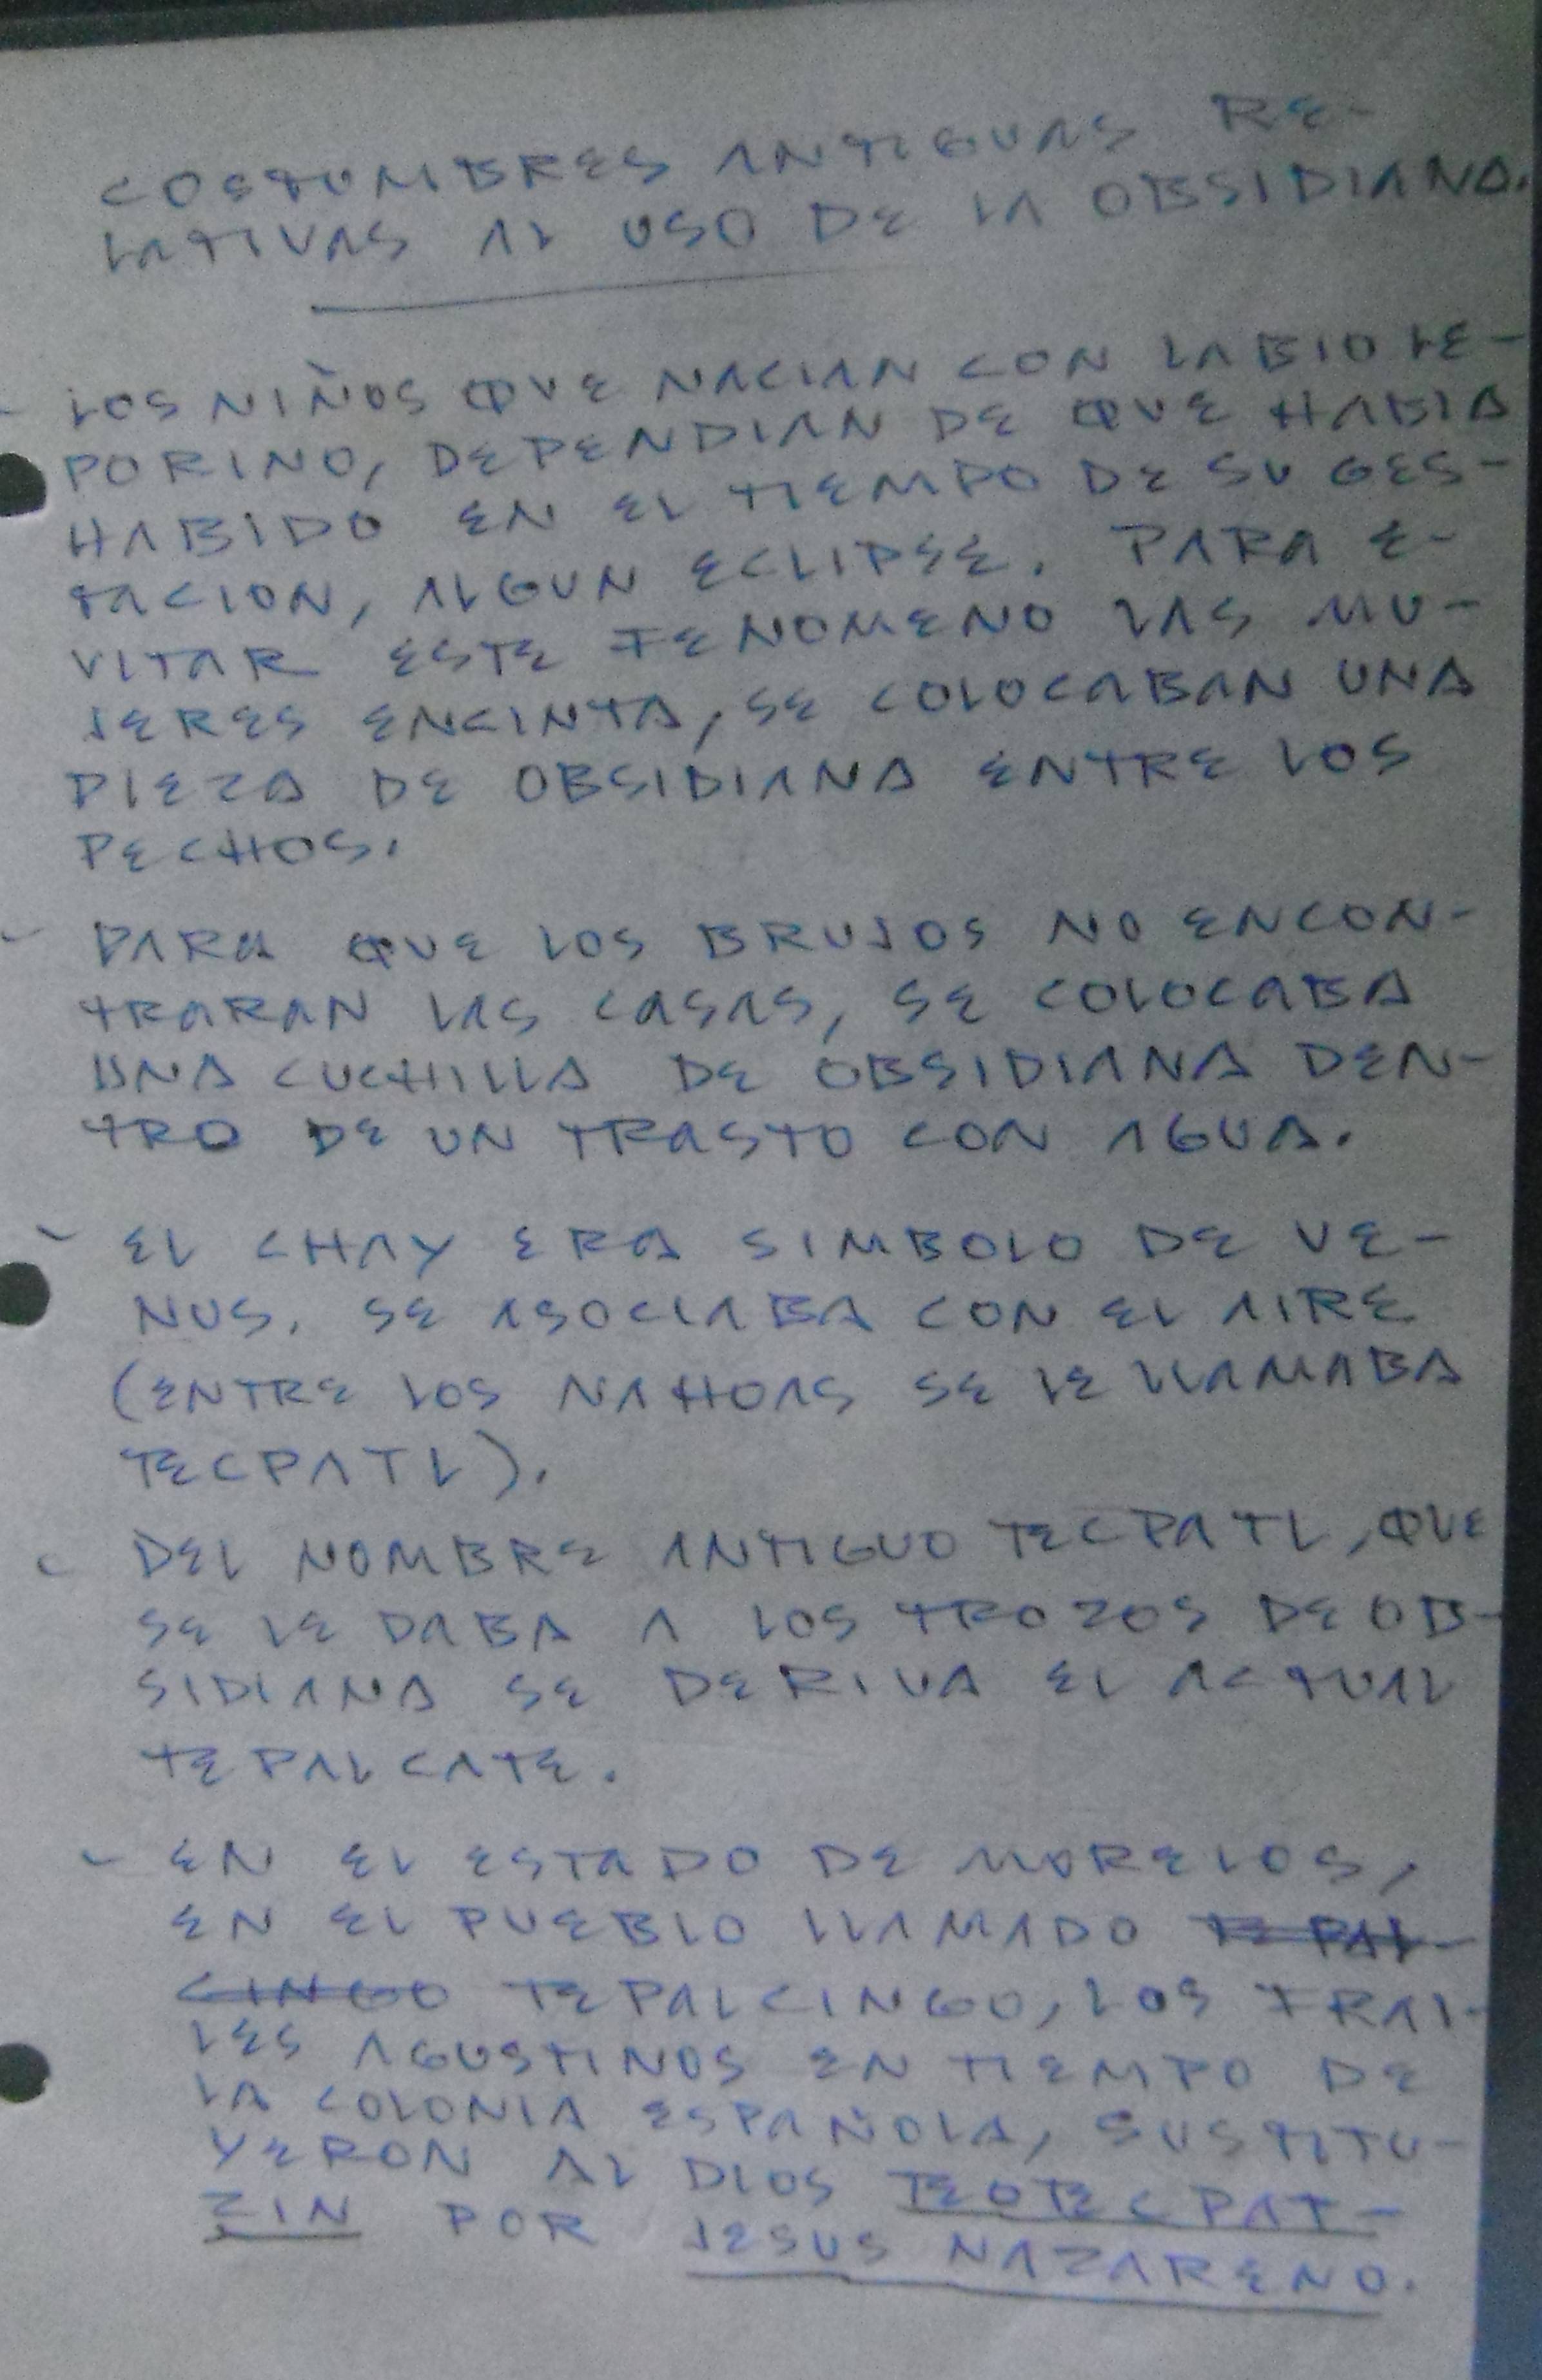 COSTUMBRES ANTIGUAS RE-
LATIVAS AL USO DE LA OBSIDIANA.
- LOS NIÑOS QUE NACIAN CON LABIO LE-
PORINO, DEPENDIAN DE QUE HABIA
HABIDO EN EL TIEMPO DE SU GES-
TACION, ALGUN ECLIPSE. PARA E-
VITAR ESTE FENOMENO LAS MU-
JERES ENCINTA, SE COLOCABAN UNA
PIEZA DE OBSIDIANA ENTRE LOS
PECHOS.
- PARA QUE LOS BRUJOS NO ENCON-
TRARAN LAS CASAS, SE COLOCABA
UNA CUCHILLA DE OBSIDIANA DEN-
TRO DE UN TRASTO CON AGUA.
- EL CHAY ERA SIMBOLO DE VE-
NUS. SE ASOCIABA CON EL AIRE
(ENTRE LOS NAHOAS SE LE LLAMABA
TECPATL).
- DEL NOMBRE ANTIGUO TECPATL, QUE
SE LE DABA A LOS TROZOS DE OB-
SIDIANA SE DERIVA EL ACTUAL
TEPALCATE.
- EN EL ESTADO DE MORELOS,
EN EL PUEBLO LLAMADO TEPAL-
CINGO TEPALCINGO, LOS FRAI-
LES AGUSTINOS EN TIEMPO DE
LA COLONIA ESPAÑOLA, SUSTITU-
YERON AL DIOS TEOTECPAT-
ZIN POR JESUS NAZARENO.